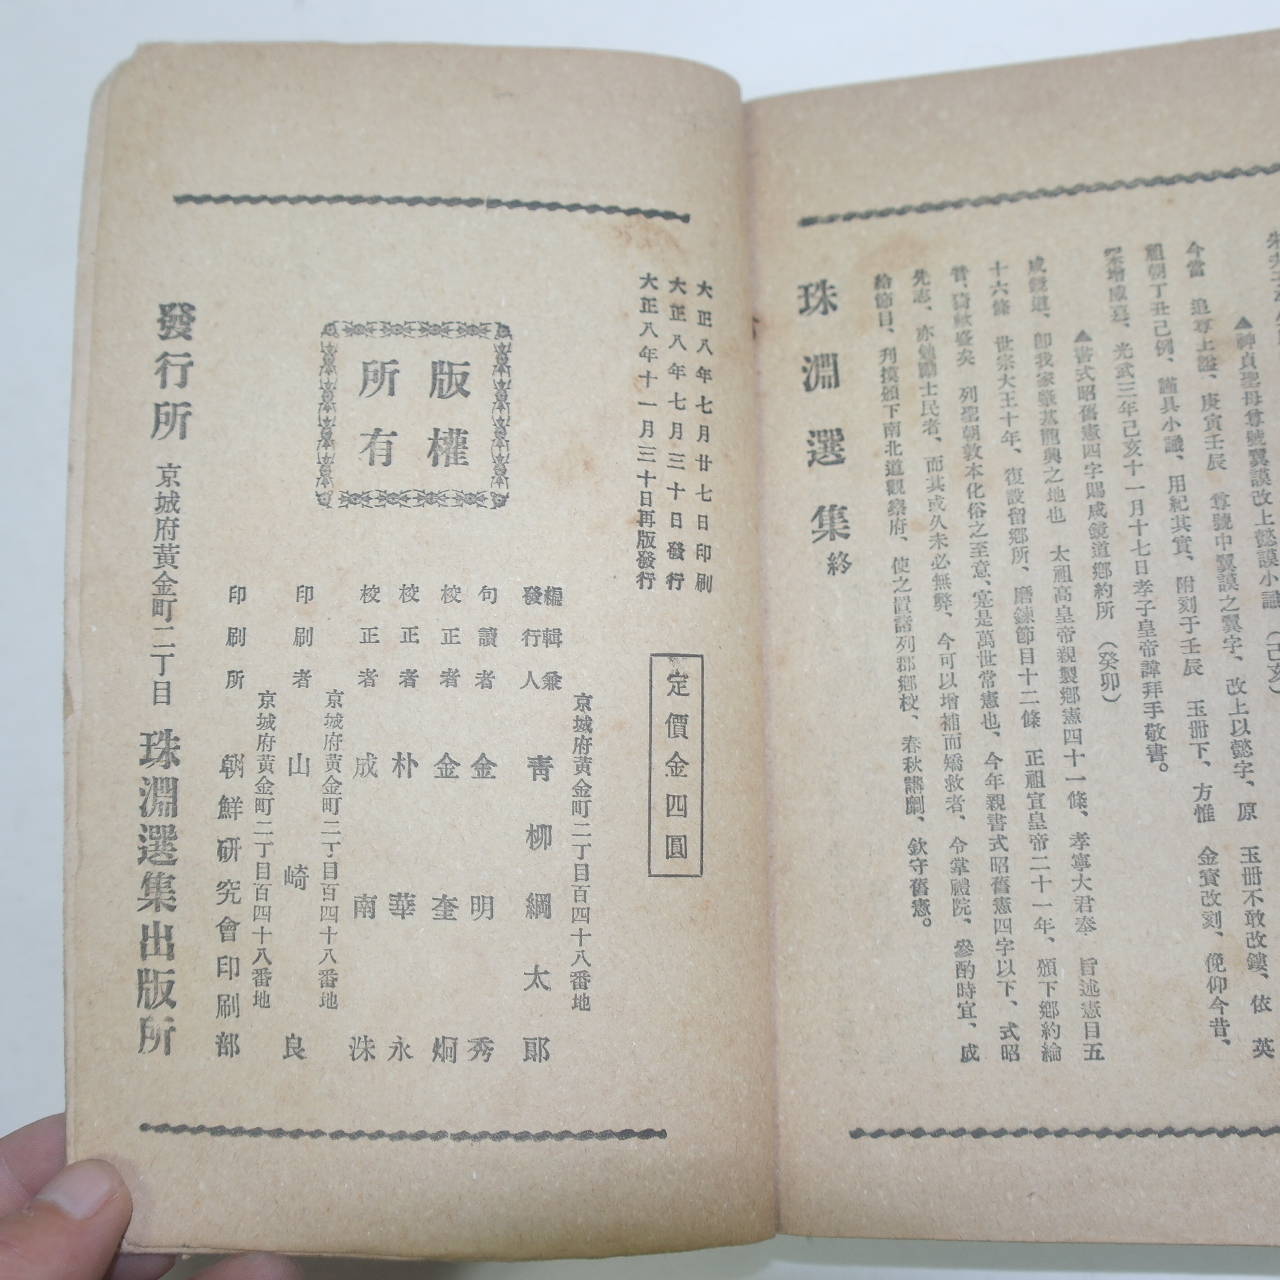 ▲神貞聖母尊號翼謨改上懿謨小識 (己亥)
今當 追尊上謚、庚寅壬辰 尊號中翼謨之翼字、改上以懿字、原 玉册不敢改鏤、依 英
祖朝丁丑已例、謹具小識、用紀其實、附刻于壬辰 玉册下、方惟 金寶改刻、俛仰今昔、
采增感寔、光武三年己亥十一月十七日孝子皇帝諱拜手敬書。
▲書式昭舊憲四字賜咸鏡道鄉約所 (癸卯)
咸鏡道、卽我家肇基龍興之地也 太祖高皇帝親製鄉憲四十一條、孝寧大君奉 旨述憲目五
十六條 世宗大王十年、復設留鄉所、磨鍊節目十二條 正祖宣皇帝二十一年、頒下鄉約綸
音、猗歟盛矣 列聖朝敦本化俗之至意、寔是萬世常憲也、今年親書式昭舊憲四字以下、式昭
先志、亦勉勵士民者、而其或久未必無弊、今可以增補而矯救者、令掌禮院、參酌時宜、成
給節目、列摸頒下南北道觀察府、使之置諸列郡鄉校、春秋講劘、欽守舊憲。
珠淵選集終
大正八年七月廿七日印刷
大正八年七月三十日發行
大正八年十一月三十日再版發行
定價金四圓
版權
所有
京城府黃金町二丁目百四十八番地
編輯兼
發行人 靑柳綱太郎
句讀者 金明秀
校正者 金奎炯
校正者 朴華永
校正者 成南洙
京城府黃金町二丁目百四十八番地
印刷者 山崎良
京城府黃金町二丁目百四十八番地
印刷所 朝鮮研究會印刷部
發行所 京城府黃金町二丁目 珠淵選集出版所